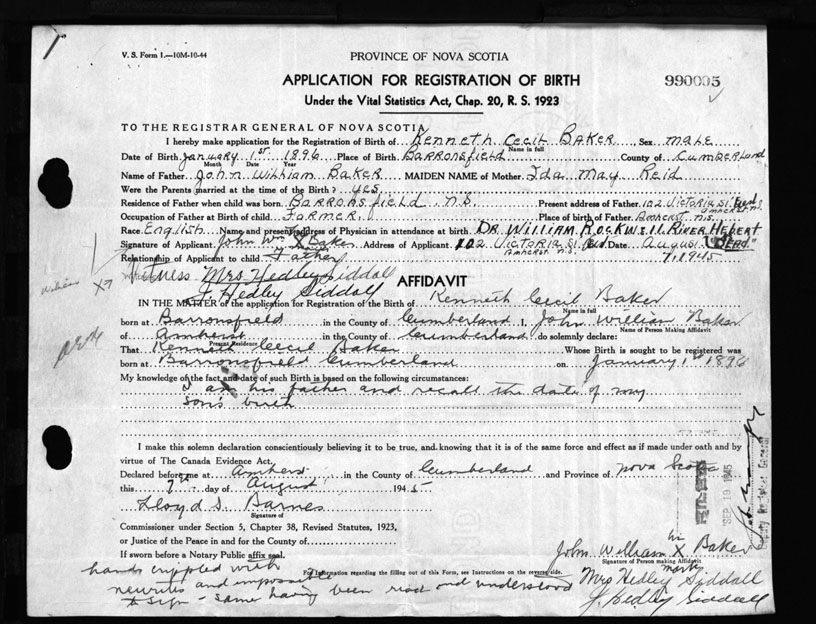 V. S. Form 1.—10M-10-44
PROVINCE OF NOVA SCOTIA
APPLICATION FOR REGISTRATION OF BIRTH
990005
Under the Vital Statistics Act, Chap. 20, R. S. 1923
TO THE REGISTRAR GENERAL OF NOVA SCOTIA
I hereby make application for the Registration of Birth of Kenneth Cecil BAKER Sex MALE
Name in full
Date of Birth January 1st 1896 Place of Birth BARRONSField County of CUMBERLAND
Month Date Year
Name of Father John William BAKER MAIDEN NAME of Mother Ida May Reid
Were the Parents married at the time of the Birth? yes
Residence of Father when child was born BARRONSfield N.S. Present address of Father 102 VICTORIA St.
AMHERST N.S.
Occupation of Father at Birth of child FARMER. Place of birth of Father Amherst N.S.
Race English Name and present address of Physician in attendance at birth DR WILLIAM ROCKWELL RIVER HEBERT
"DEAD"
Signature of Applicant John Wm X Baker Address of Applicant 102 VICTORIA St. Date August
AMHERST N.S.
7, 1945
Relationship of Applicant to child Father
Witness Mrs Hedley Siddall
J. Hedley Siddall
AFFIDAVIT
IN THE MATTER of the application for Registration of the Birth of Kenneth Cecil Baker
Name in full
born at Barronsfield in the County of Cumberland I, John William Baker
Name of Person Making Affidavit
of Amherst in the County of Cumberland do solemnly declare:
Present Residence
That Kenneth Cecil Baker Whose Birth is sought to be registered was
born at Barronsfield Cumberland on January 1st 1896
My knowledge of the fact and date of such Birth is based on the following circumstances:
I am his father and recall the date of my
son's birth
I make this solemn declaration conscientiously believing it to be true, and knowing that it is of the same force and effect as if made under oath and by
virtue of The Canada Evidence Act,
Declared before me at Amherst in the County of Cumberland and Province of Nova Scotia
this 7th day of August 1945
Lloyd S. Barnes
Signature of
Commissioner under Section 5, Chapter 38, Revised Statutes, 1923,
or Justice of the Peace in and for the County of
If sworn before a Notary Public affix seal.
SEP 19 1945
Deputy Registrar General
John William X Baker
his
mark
Signature of Person making Affidavit
For Information regarding the filling out of this Form, see Instructions on the reverse side.
Mrs Hedley Siddall
J. Hedley Siddall
hands crippled with
neuritis and impossible
to sign - same having been read and understood